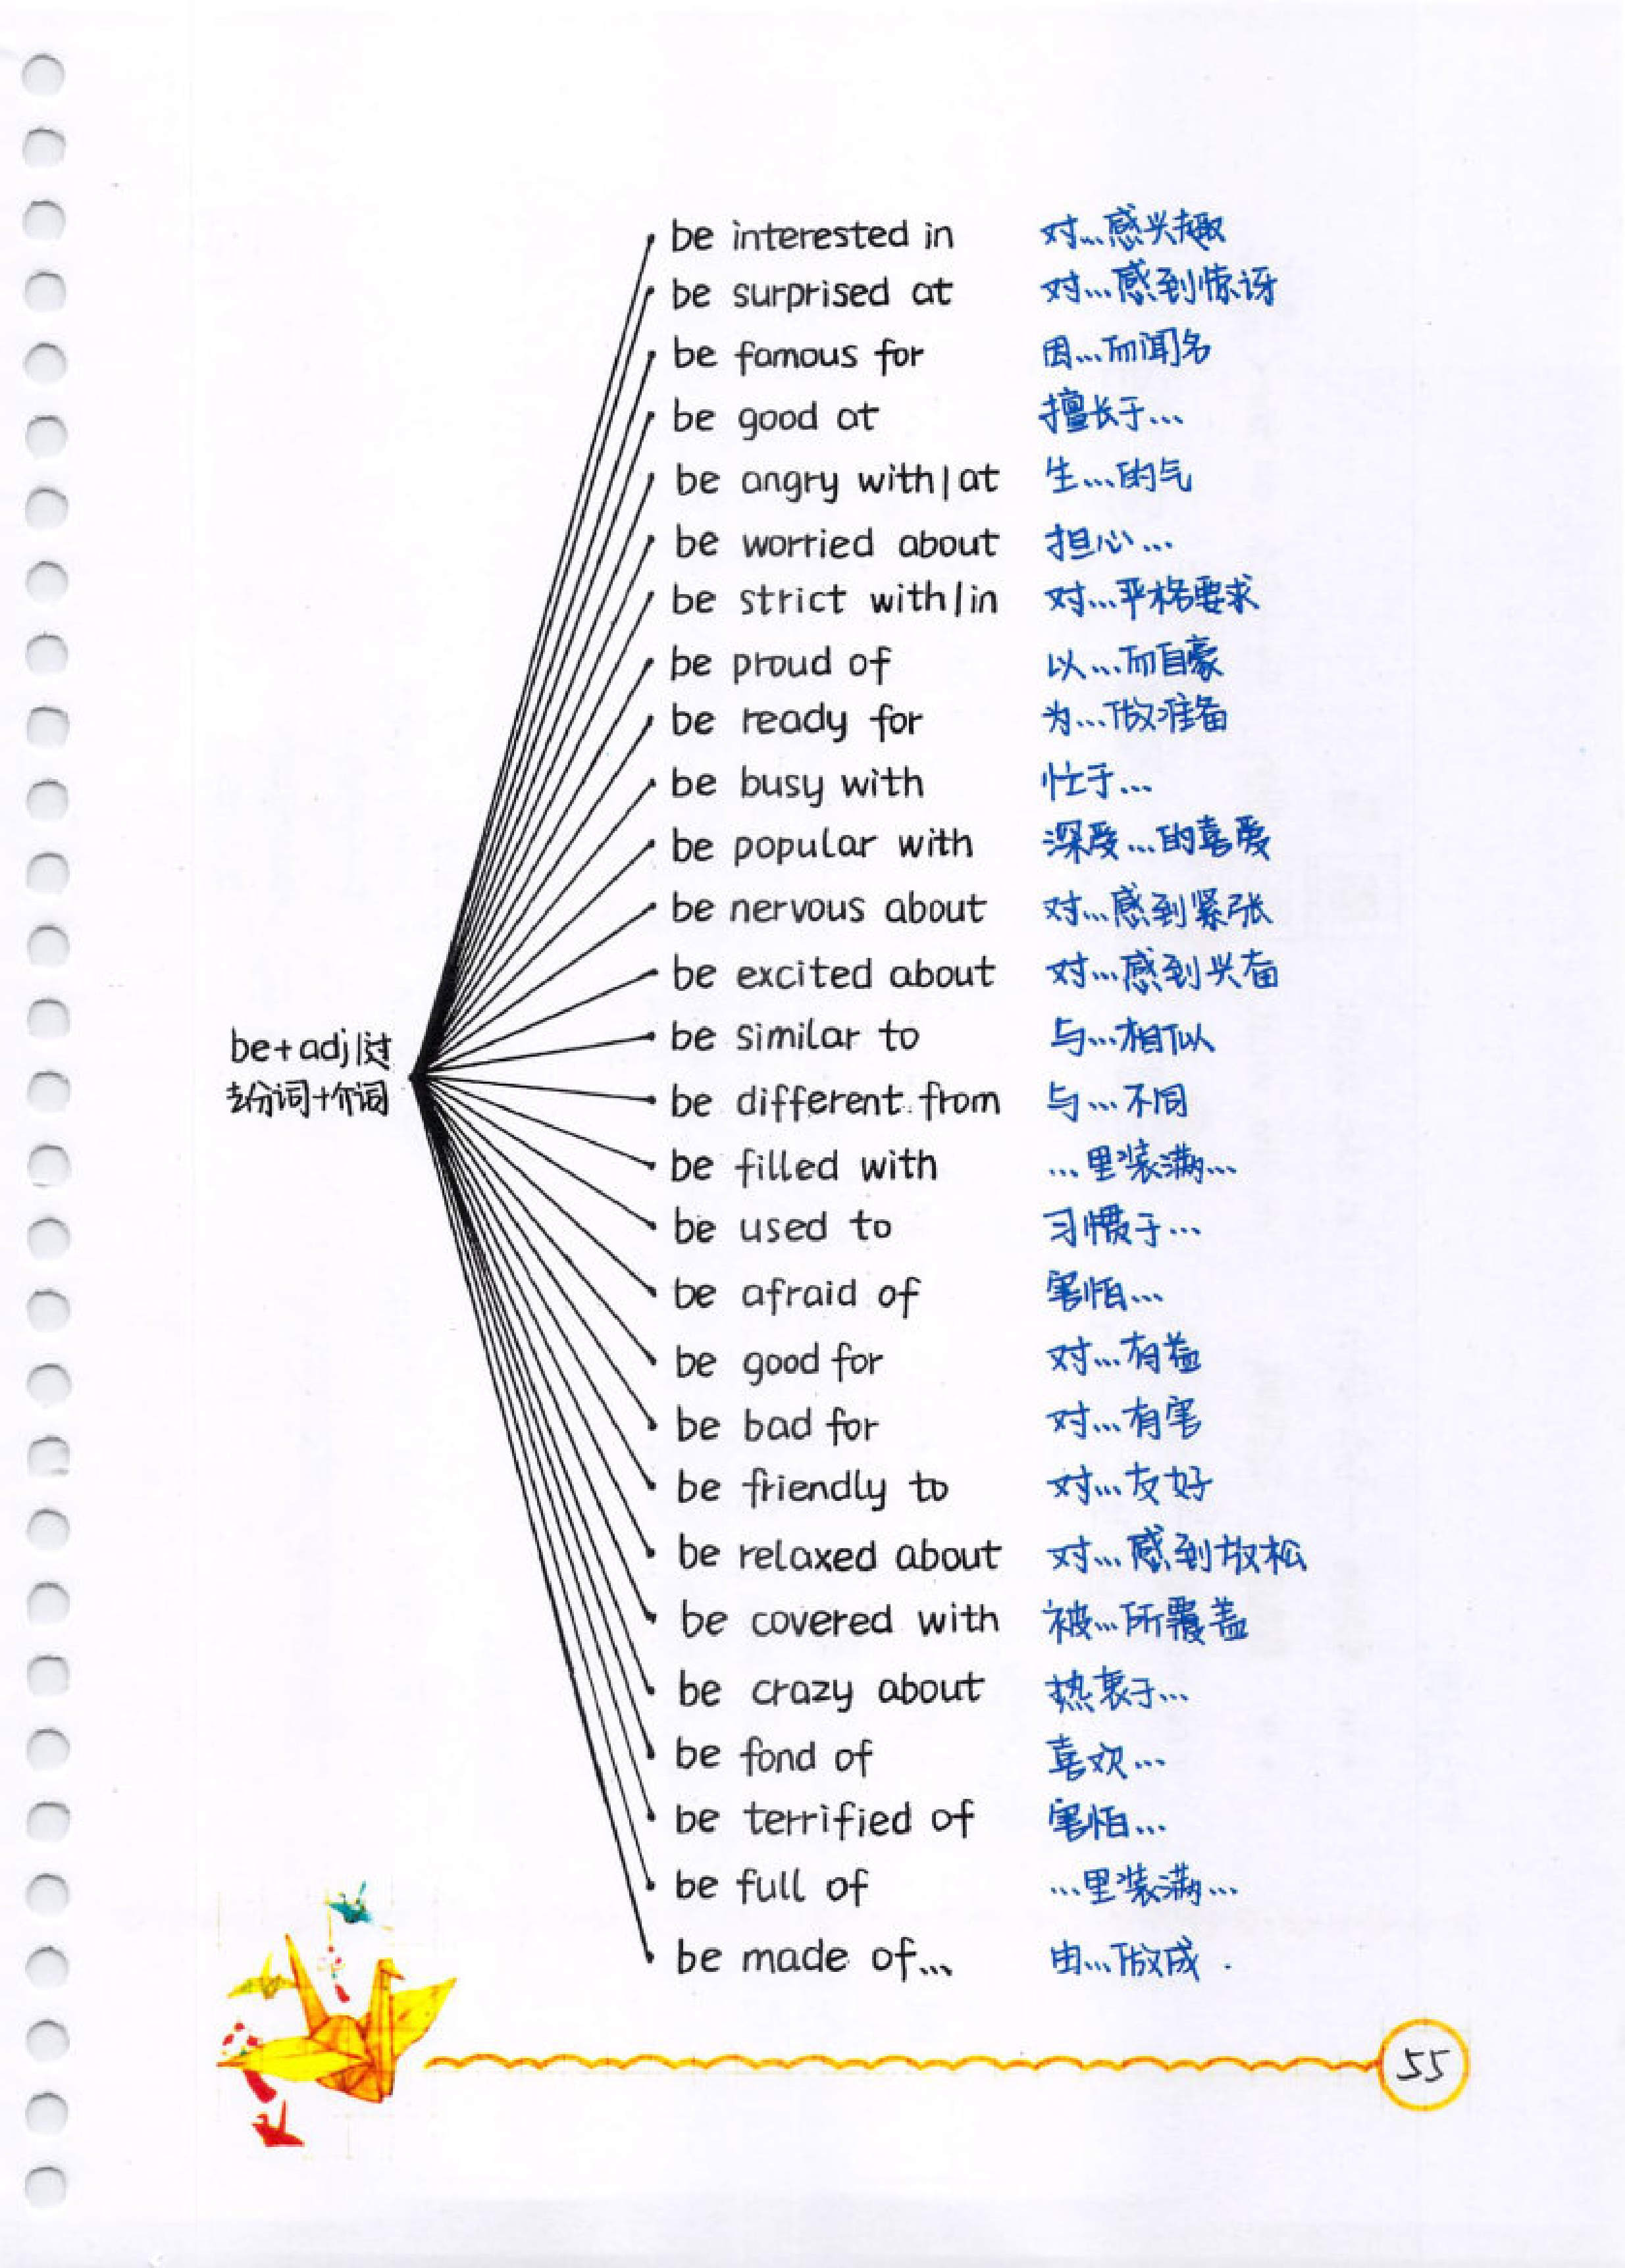 be interested in 对...感兴趣
be surprised at 对...感到惊讶
be famous for 因...而闻名
be good at 擅长于...
be angry with|at 生...的气
be worried about 担心...
be strict with|in 对...严格要求
be proud of 以...而自豪
be ready for 为...做准备
be busy with 忙于...
be popular with 深受...的喜爱
be nervous about 对...感到紧张
be excited about 对...感到兴奋
be+adj|过
去分词+介词
be similar to 与...相似
be different from 与...不同
be filled with ...里装满...
be used to 习惯于...
be afraid of 害怕...
be good for 对...有益
be bad for 对...有害
be friendly to 对...友好
be relaxed about 对...感到放松
be covered with 被...所覆盖
be crazy about 热衷于...
be fond of 喜欢...
be terrified of 害怕...
be full of ...里装满...
be made of... 由...做成.
55